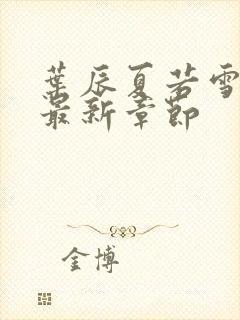 葉辰夏若雪
最新章節
金博